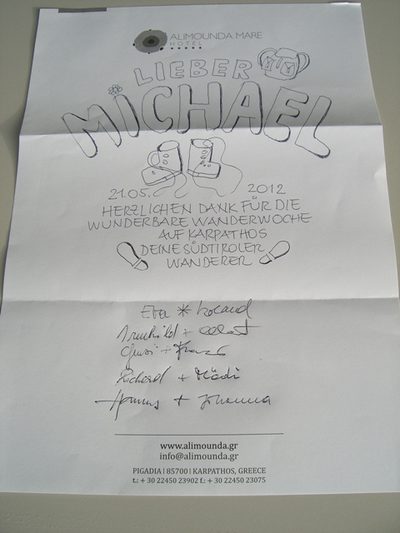 ALIMOUNDA MARE
HOTEL
LIEBER
MICHAEL
21.05. 2012
HERZLICHEN DANK FÜR DIE
WUNDERBARE WANDERWOCHE
AUF KARPATHOS
DEINE SÜDTIROLER
WANDERER
Roland
+
+
Richard +
Hannes + Johanna
www.alimounda.gr
info@alimounda.gr
PIGADIA | 85700 | KARPATHOS, GREECE
t.: + 30 22450 23902 f.: + 30 22450 23075